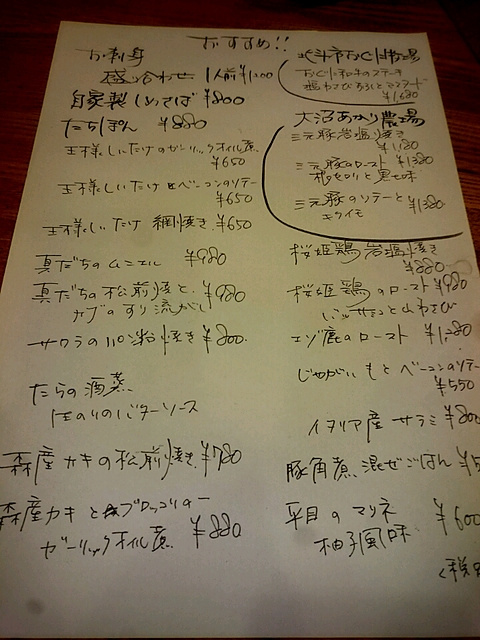 おすすめ!!
お刺身
盛り合わせ 1人前¥1200
自家製しめさば ¥800
たちぽん ¥880
王様しいたけのガーリックオイル煮
¥650
王様しいたけとベーコンのソテー
¥650
王様しいたけ 網焼き ¥650
真だちのムニエル ¥980
真だちの松前焼と ¥980
カブのすり流がし
サクラのパン粉焼き ¥800.
たらの酒蒸
ほのりのバターソース
森産カキの松前焼き ¥780
森産カキとブロッコリー
ガーリックオイル煮 ¥880
北斗市おぐに牧場
おぐに和牛のステーキ
塩わさび マスタード
¥1680
大沼あかり農場
三元豚岩塩焼き
¥1180
三元豚のロースト ¥1380
根セロリと黒七味
三元豚のソテーと ¥1380
キクイモ
桜姫鶏 岩塩焼き
¥880
桜姫鶏のロースト ¥980
山わさび
エゾ鹿のロースト ¥1280
じゃがいもとベーコンのソテー
¥550
イタリア産 サラミ ¥800
豚角煮 混ぜごはん ¥5
平目のマリネ ¥600
柚子風味
(税